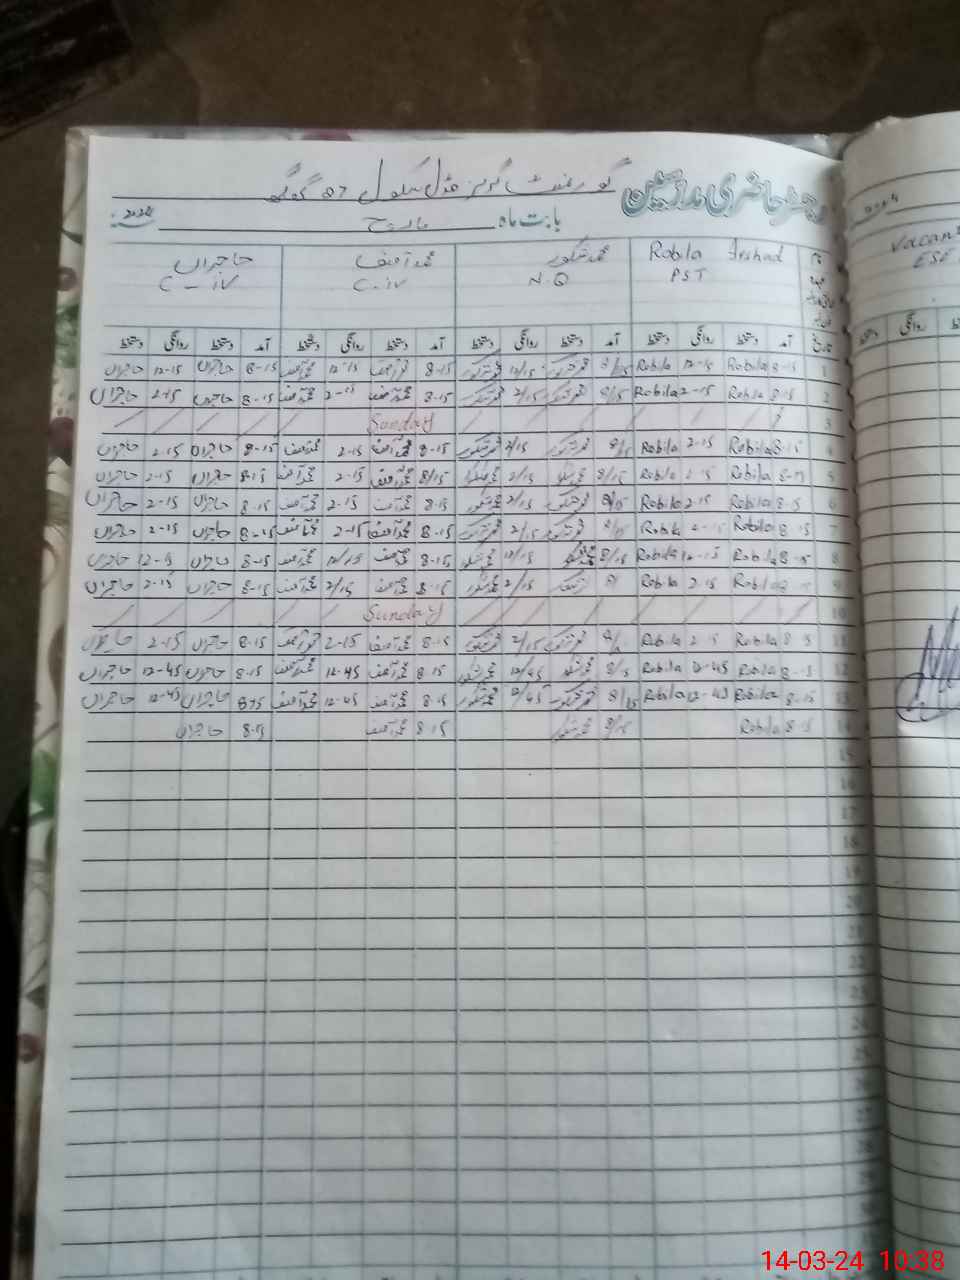 رجسٹر حاضری مدرسین گورنمنٹ گرلز مڈل سکول 87 گ ب
بابت ماہ مارچ 2024
نام Robila Arshad محمد شکور محمد آصف حاجراں
PST N.Q C-iv C-iv
تاریخ آمد دستخط روانگی دستخط آمد دستخط روانگی دستخط آمد دستخط روانگی دستخط آمد دستخط روانگی دستخط
1 8-15 Robila 12-15 Robila 8/15 محمد شکور 12/15 محمد شکور 8-15 محمد آصف 12-15 محمد آصف 8-15 حاجراں 12-15 حاجراں
2 8-15 Robila 2-15 Robila 8/15 محمد شکور 2/15 محمد شکور 8-15 محمد آصف 2-15 محمد آصف 8-15 حاجراں 2-15 حاجراں
3 Sunday
4 8-15 Robila 2-15 Robila 8/15 محمد شکور 2/15 محمد شکور 8-15 محمد آصف 2-15 محمد آصف 8-15 حاجراں 2-15 حاجراں
5 8-15 Robila 2-15 Robila 8/15 محمد شکور 2/15 محمد شکور 8/15 محمد آصف 2-15 محمد آصف 8-15 حاجراں 2-15 حاجراں
6 8-15 Robila 2-15 Robila 8/15 محمد شکور 2/15 محمد شکور 8-15 محمد آصف 2-15 محمد آصف 8-15 حاجراں 2-15 حاجراں
7 8-15 Robila 2-15 Robila 8/15 محمد شکور 2/15 محمد شکور 8-15 محمد آصف 2-15 محمد آصف 8-15 حاجراں 2-15 حاجراں
8 8-15 Robila 12-15 Robila 8/15 محمد شکور 12/15 محمد شکور 8-15 محمد آصف 12/15 محمد آصف 8-15 حاجراں 12-15 حاجراں
9 Robila 2-15 Robila محمد شکور 2/15 محمد شکور 8-15 محمد آصف 2/15 محمد آصف 8-15 حاجراں 2-15 حاجراں
10 Sunday
11 8-15 Robila 2-15 Robila محمد شکور 2/15 محمد شکور 8-15 محمد آصف 2-15 محمد آصف 8-15 حاجراں 2-15 حاجراں
12 8-15 Robila 12-45 Robila 8/15 محمد شکور 12/45 محمد شکور 8-15 محمد آصف 12-45 محمد آصف 8-15 حاجراں 12-45 حاجراں
13 8-15 Robila 12-45 Robila 8/15 محمد شکور 12/45 محمد شکور 8-15 محمد آصف 12-45 محمد آصف 8-15 حاجراں 12-45 حاجراں
14 8-15 Robila 8/15 محمد شکور 8-15 محمد آصف 8-15 حاجراں
15
16
17
18
19
20
21
22
23
24
25
ESE
روانگی دستخط
14-03-24 10:38